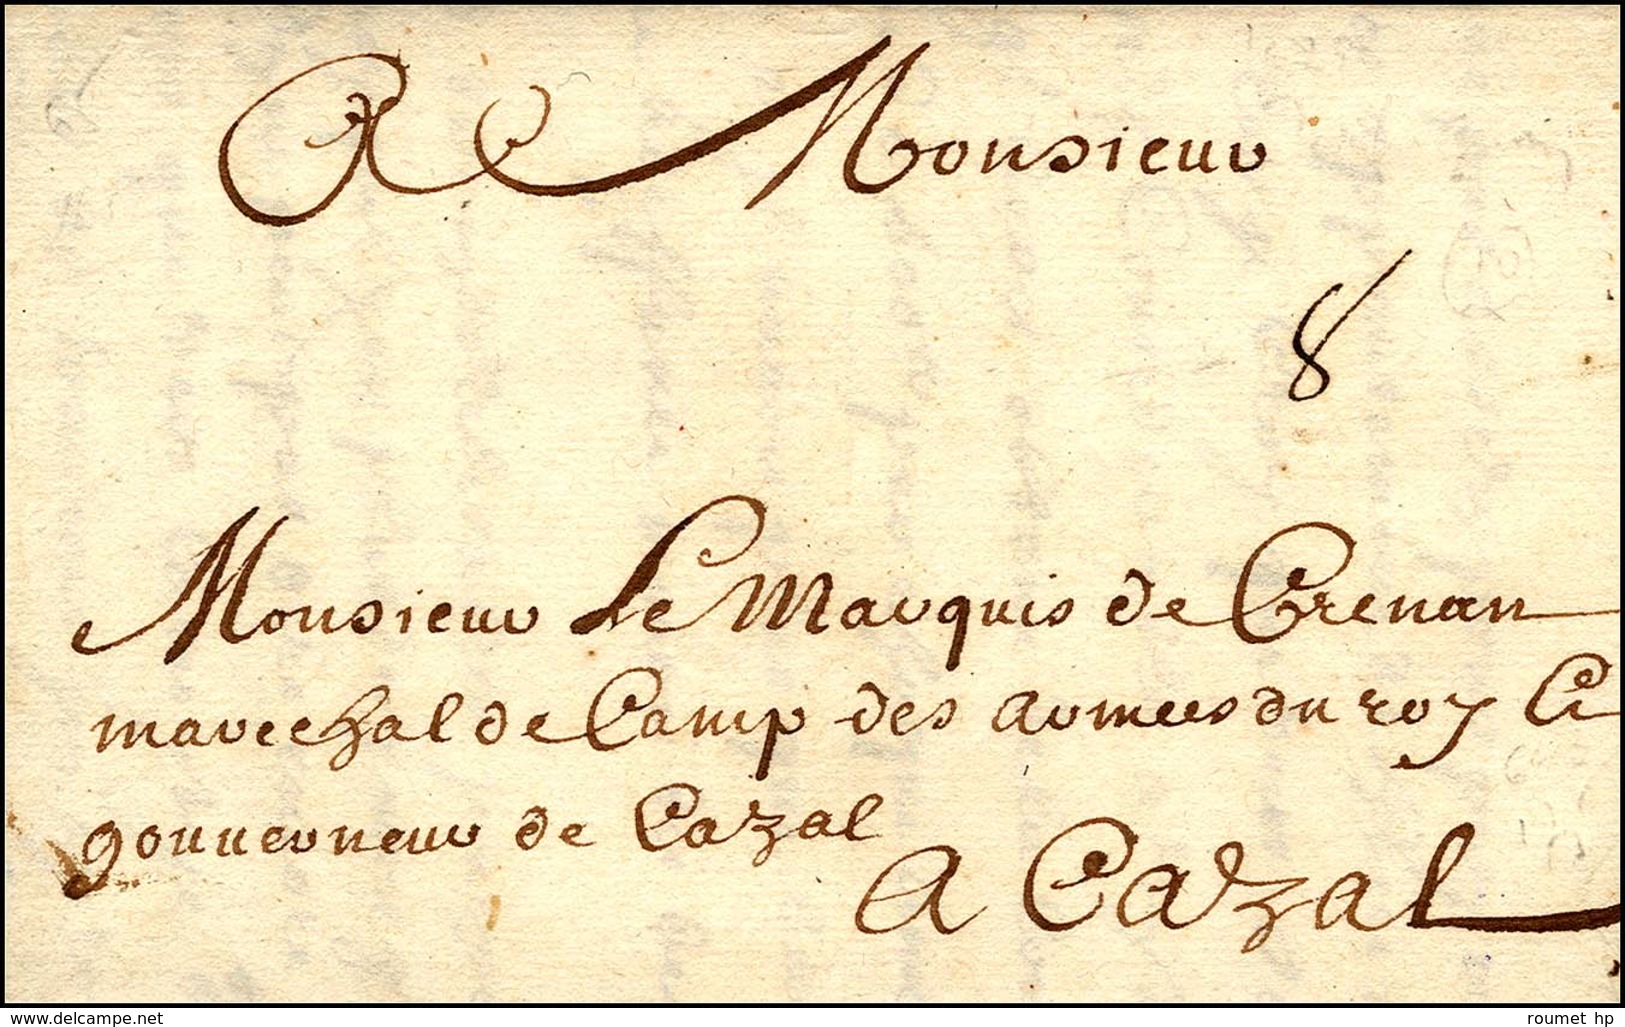 A Monsieur
8
Monsieur Le Marquis de Crenan
marechal de Camp des armees du roy Et
gouuerneur de Cazal
A Cazal
www.delcampe.net
roumet hp